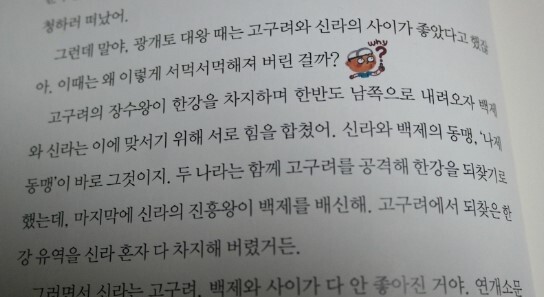 청하러 떠났어.
그런데 말야, 광개토 대왕 때는 고구려와 신라의 사이가 좋았다고 했잖
아. 이때는 왜 이렇게 서먹서먹해져 버린 걸까? why ?
고구려의 장수왕이 한강을 차지하며 한반도 남쪽으로 내려오자 백제
와 신라는 이에 맞서기 위해 서로 힘을 합쳤어. 신라와 백제의 동맹, '나제
동맹'이 바로 그것이지. 두 나라는 함께 고구려를 공격해 한강을 되찾기로
했는데, 마지막에 신라의 진흥왕이 백제를 배신해. 고구려에서 되찾은 한
강 유역을 신라 혼자 다 차지해 버렸거든.
그러면서 신라는 고구려, 백제와 사이가 다 안 좋아진 거야. 연개소문